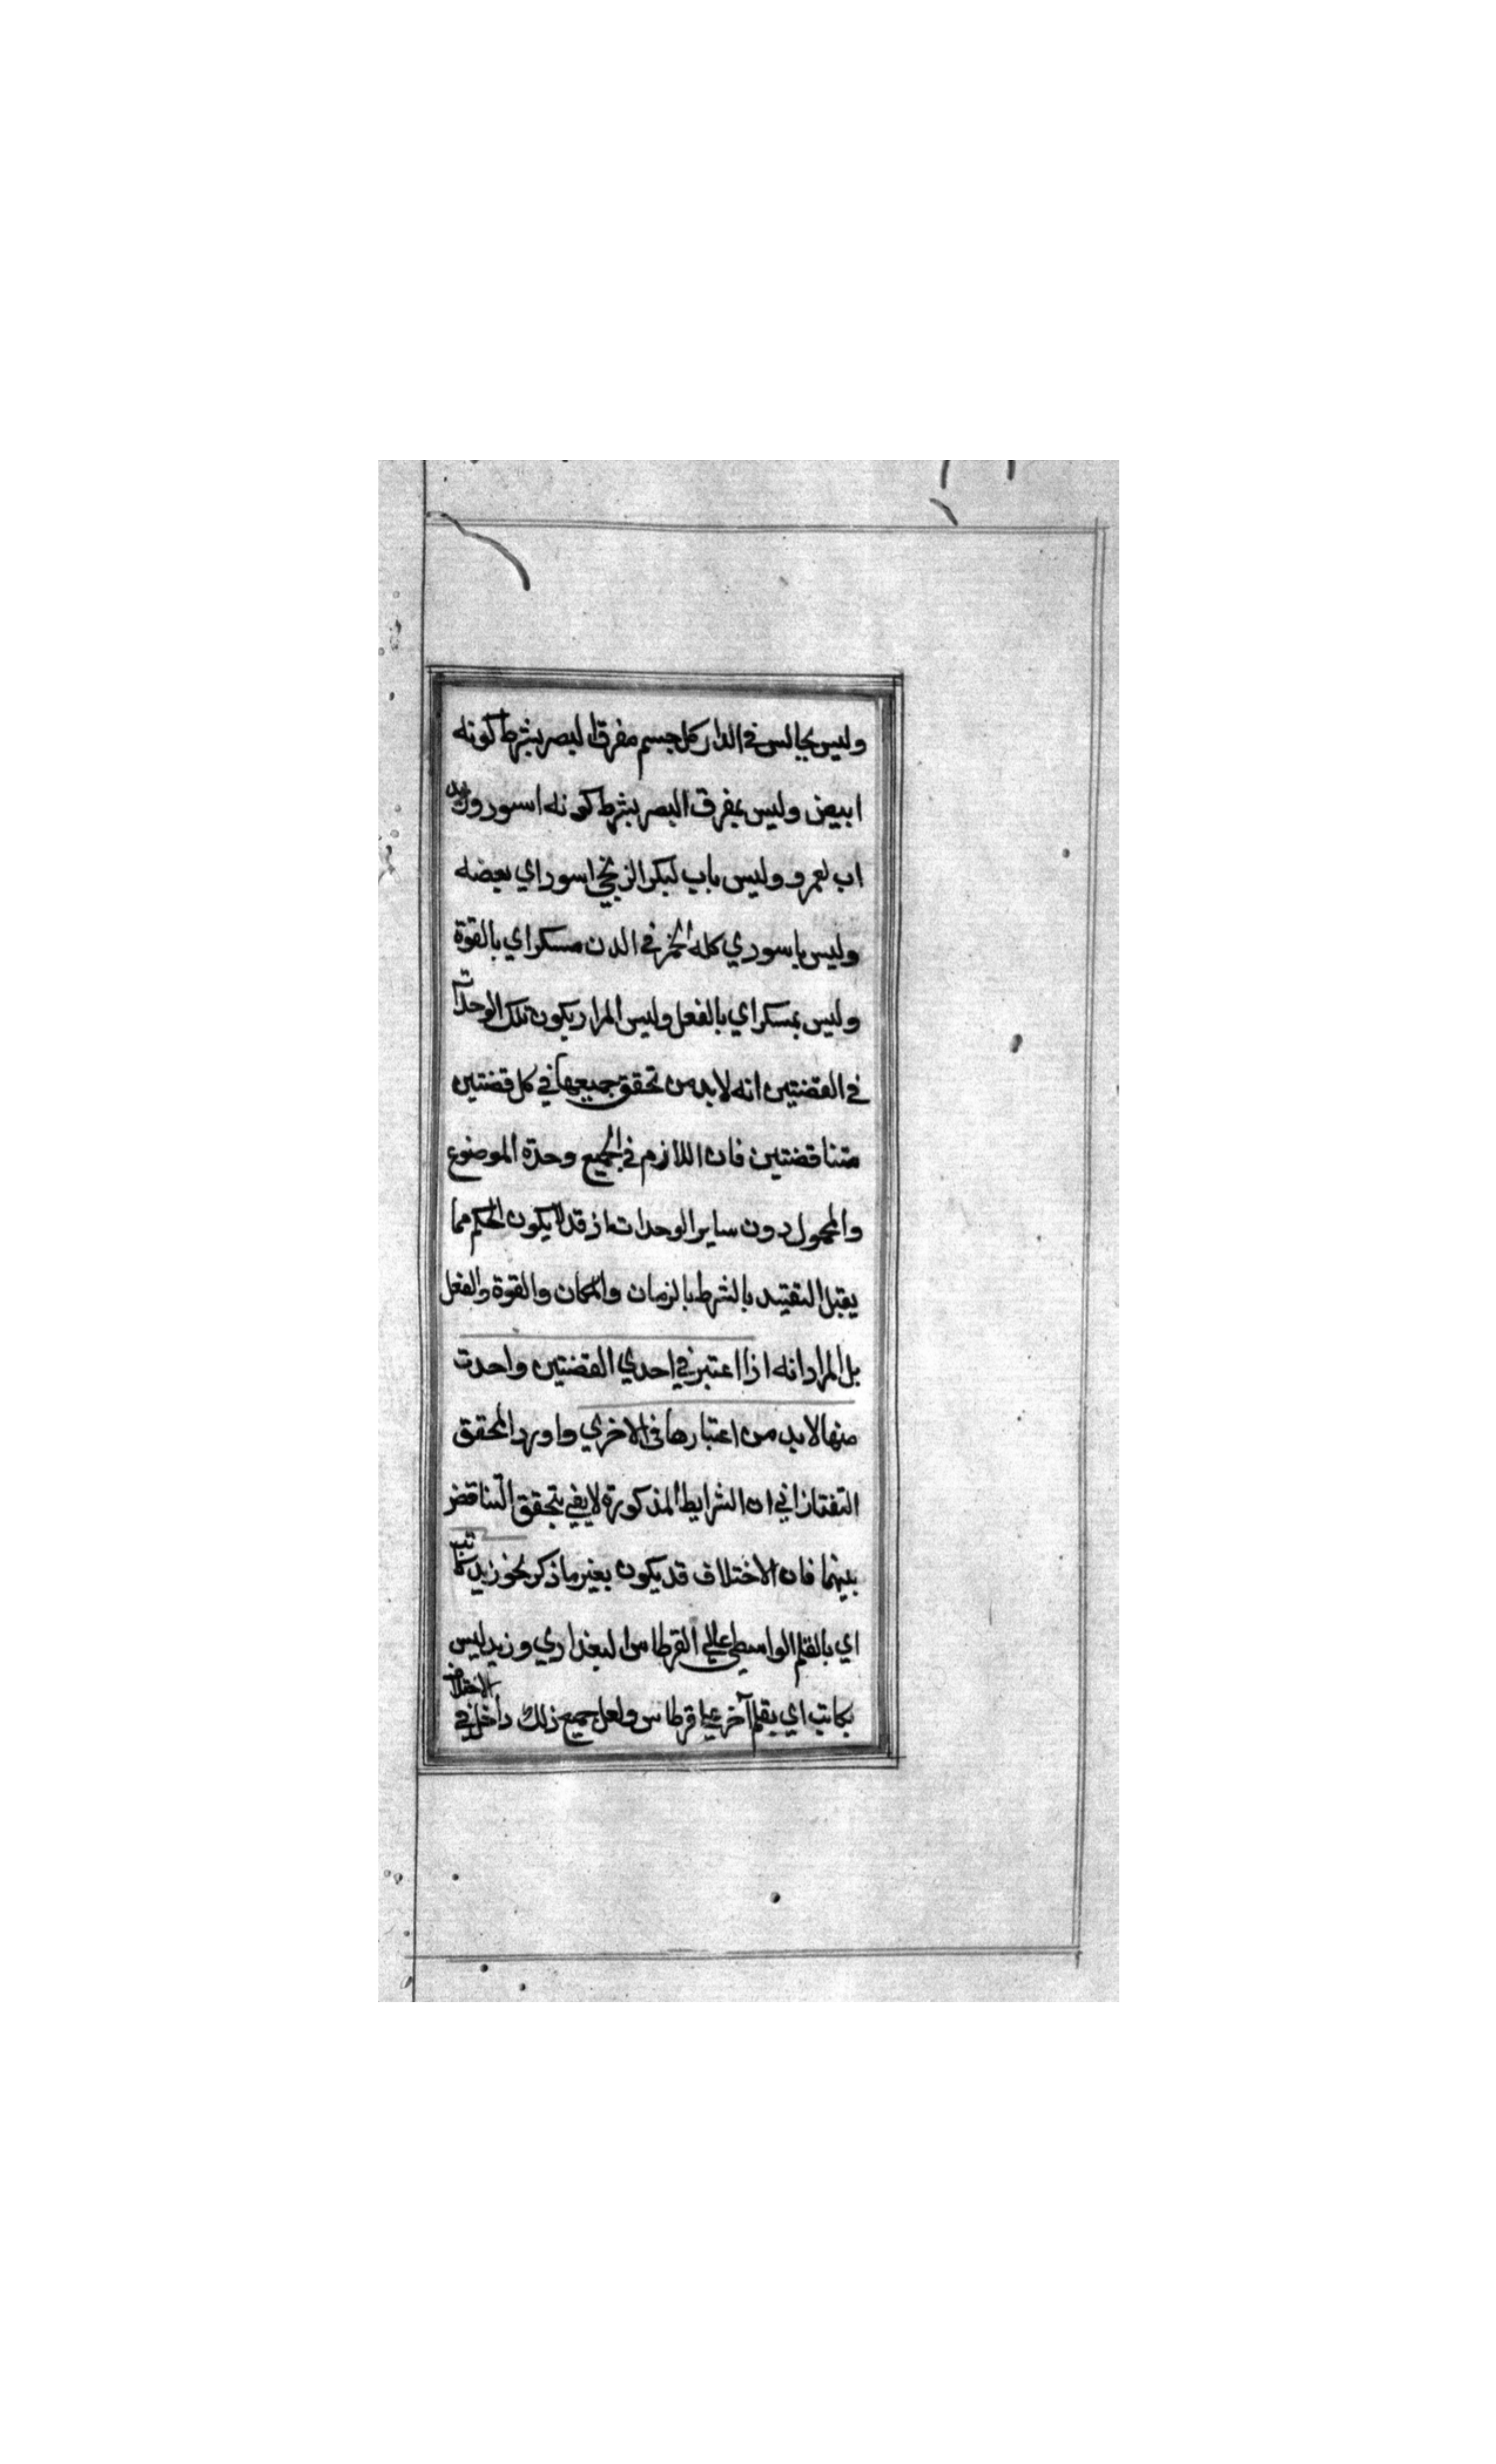 وليس بجالس في الدار كل جسم مفرق البصر بشرط كونه
ابيض وليس بمفرق البصر بشرط كونه اسود وزيد
اب لعمرو وليس باب لبكر الزنجي اسود اي بعضه
وليس باسود اي كله الخمر في الدن مسكر اي بالقوة
وليس بمسكر اي بالفعل وليس المراد بكون تلك الوحدات
في القضتين انه لابد من تحقق جميعها في كل قضتين
متناقضتين فان اللازم في الجميع وحدة الموضوع
والمحمول دون ساير الوحدات اذ قد لا يكون الحكم مما
يقبل التقييد بالشرط بالزمان والمكان والقوة والفعل
بل المراد انه اذا اعتبر في احدي القضتين واحدت
منها لابد من اعتبارها في الاخري واورد المحقق
التفتازاني ان الشرايط المذكورة لا يفي بتحقق التناقض
بينهما فان الاختلاف قد يكون بغير ما ذكر نحو زيد كاتب
اي بالقلم الواسطي علي القرطاس البغدادي وزيد ليس
بكاتب اي بقلم آخر علي قرطاس ولعل جميع ذلك داخل في الاختلاف